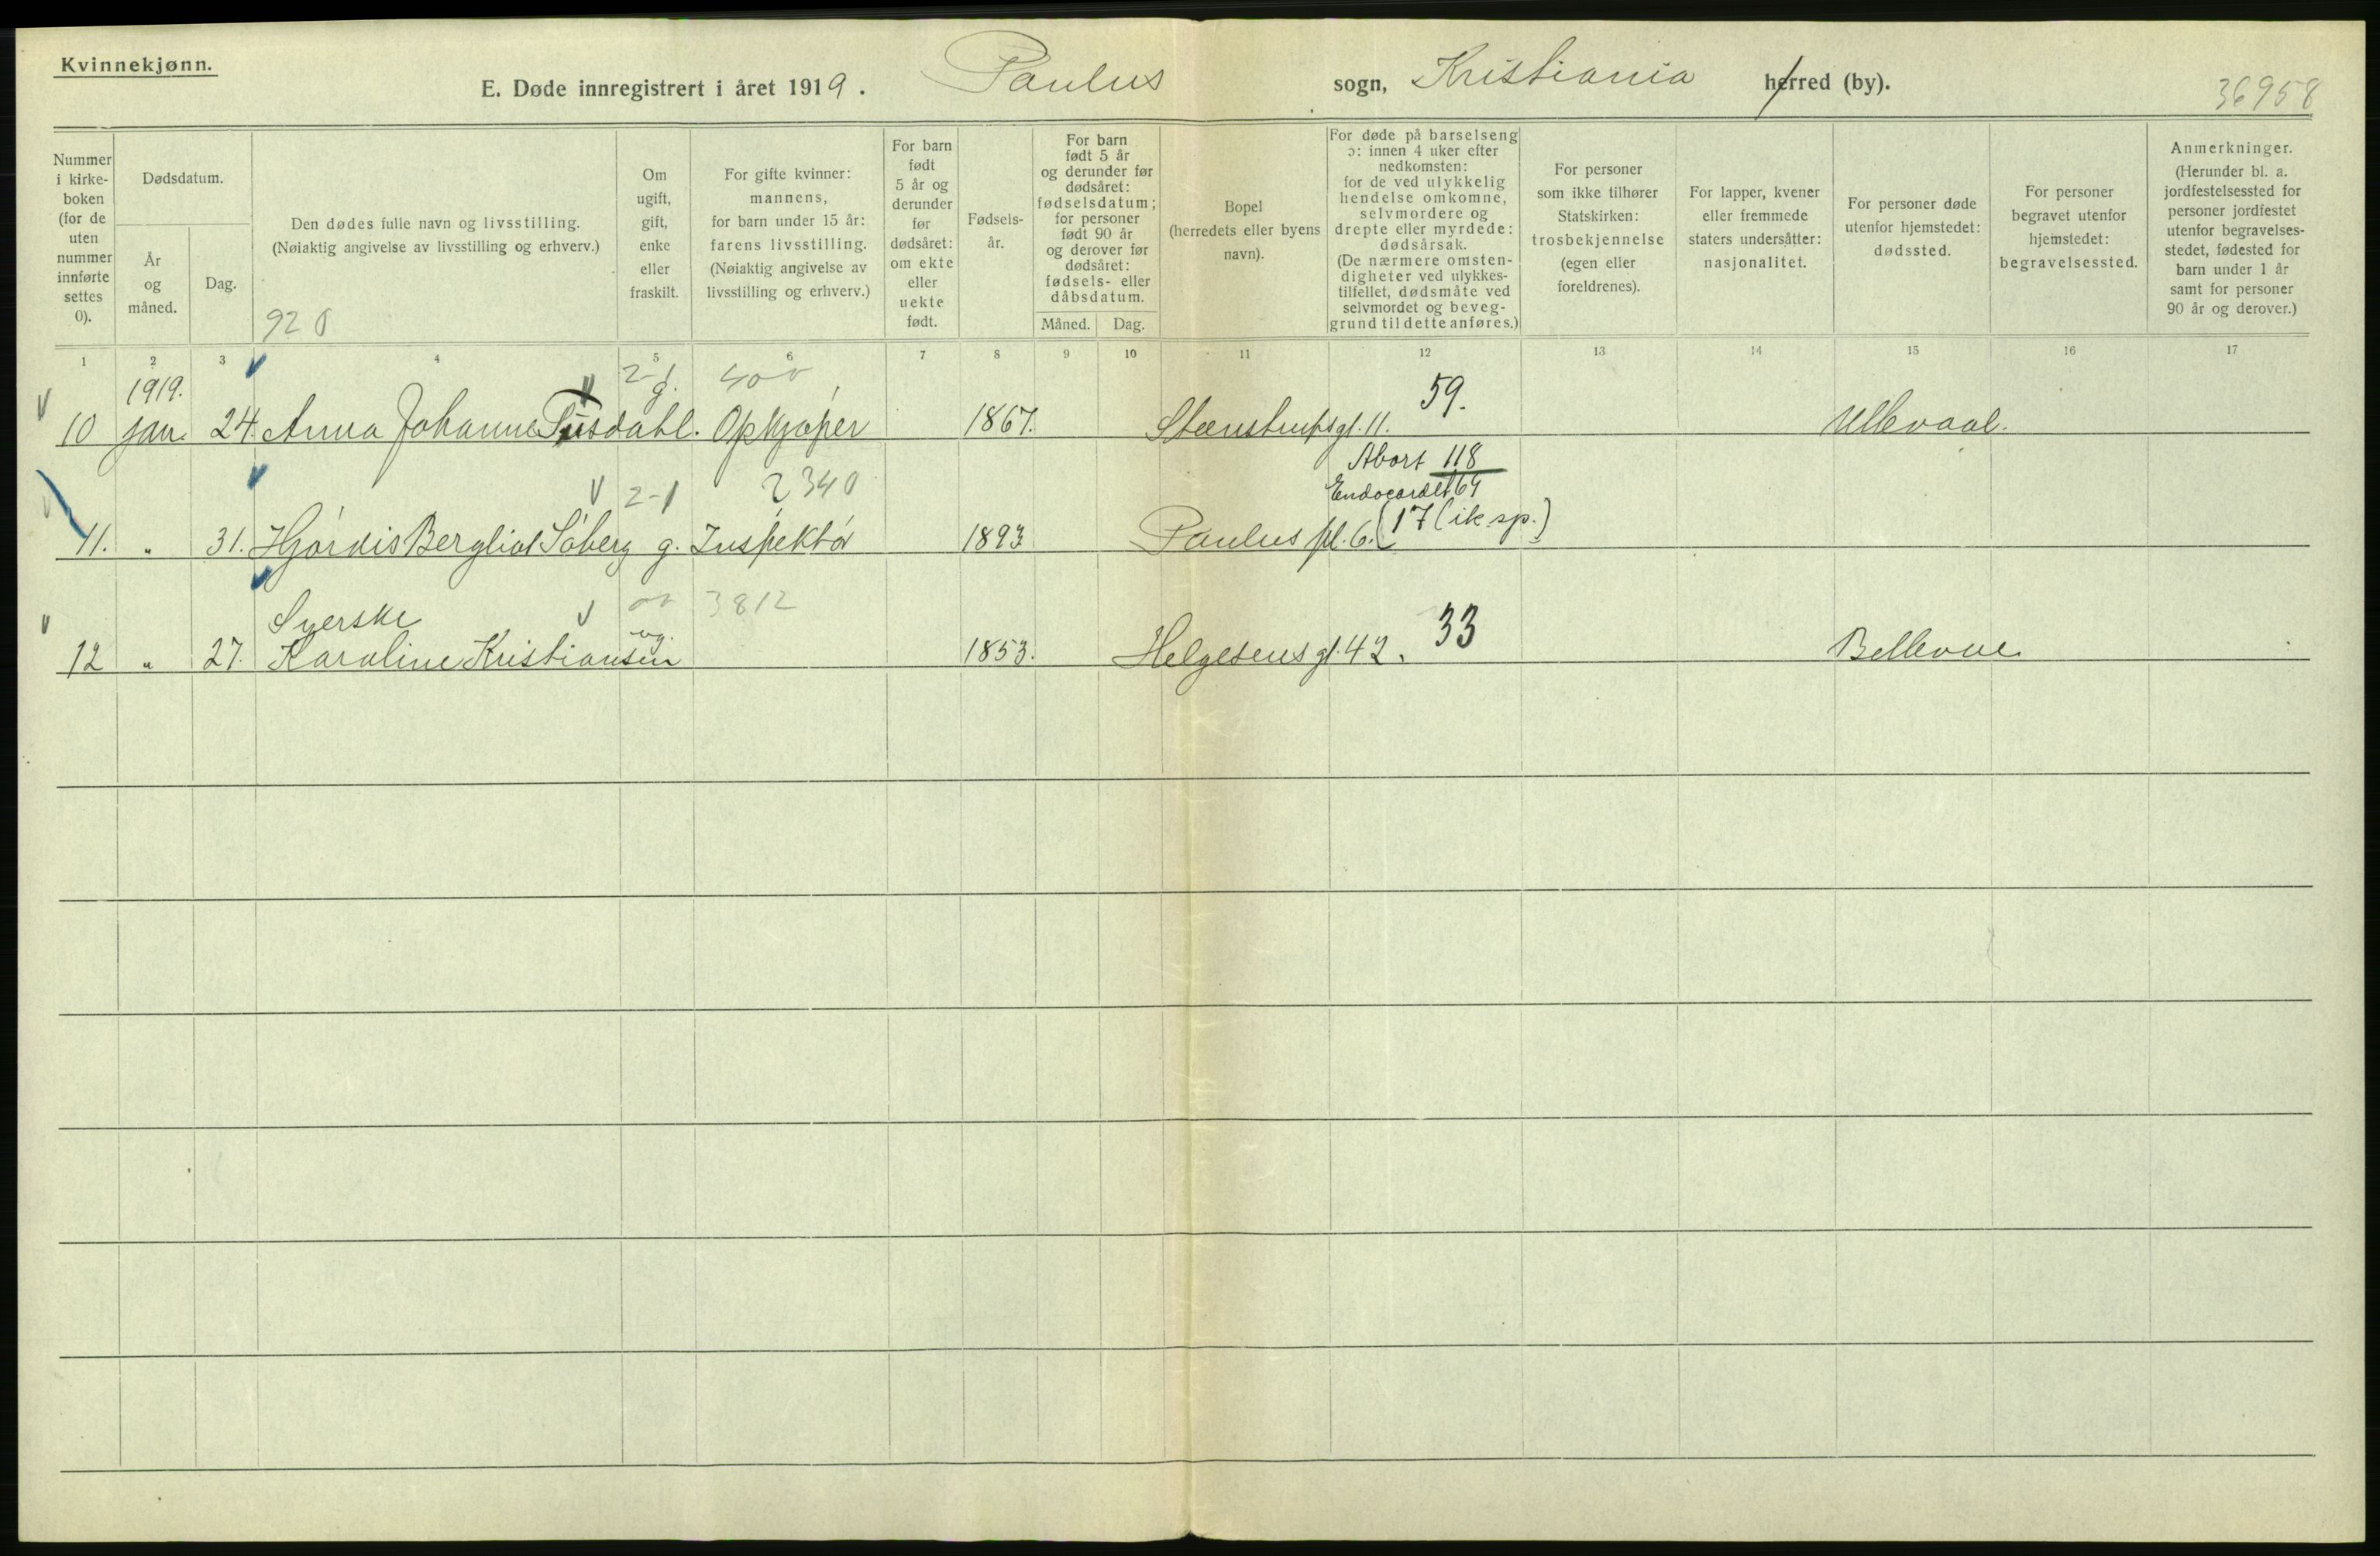 Kvinnekjønn.
E. Døde innregistrert i året 1919. Paulus sogn, Kristiania herred (by).
36958
Nummer i kirkeboken (for de uten nummer innførte settes 0).
Dødsdatum.
År og måned.
Dag.
Den dødes fulle navn og livsstilling.
(Nøiaktig angivelse av livsstilling og erhverv.)
920
Om ugift, gift, enke eller fraskilt.
For gifte kvinner: mannens, for barn under 15 år: farens livsstilling.
(Nøiaktig angivelse av livsstilling og erhverv.)
For barn født 5 år og derunder før dødsåret: om ekte eller uekte født.
Fødselsår.
For barn født 5 år og derunder før dødsåret: fødselsdatum; for personer født 90 år og derover før dødsåret: fødsels- eller dåbsdatum.
Måned. Dag.
Bopel (herredets eller byens navn).
For døde på barselseng ɔ: innen 4 uker efter nedkomsten: for de ved ulykkelig hendelse omkomne, selvmordere og drepte eller myrdede: dødsårsak.
(De nærmere omstendigheter ved ulykkestilfellet, dødsmåte ved selvmordet og beveggrund til dette anføres.)
For personer som ikke tilhører Statskirken: trosbekjennelse (egen eller foreldrenes).
For lapper, kvener eller fremmede staters undersåtter: nasjonalitet.
For personer døde utenfor hjemstedet: dødssted.
For personer begravet utenfor hjemstedet: begravelsessted.
Anmerkninger.
(Herunder bl. a. jordfestelsessted for personer jordfestet utenfor begravelsesstedet, fødested for barn under 1 år samt for personer 90 år og derover.)
1 2 3 4 5 6 7 8 9 10 11 12 13 14 15 16 17
1919. 2-1 g. 59.
10 jan. 24. Anna Johanne Tusdahl. Opkjøper 1867. Steenstrupsgt. 11. Ullevaal.
2-1 2340 Abort 118
Endocardit 64
11. " 31. Hjørdis Bergliot Søberg g. Inspektør 1893 Paulus pl. 6. (17 (ik.sp.)
Syerske 3812 ug. 33
12 " 27. Karoline Kristiansen 1853. Helgesens gt. 42. Bellevue